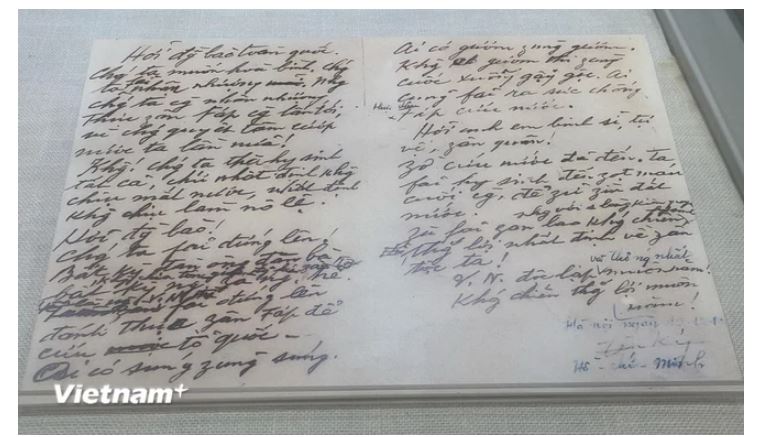 Hỡi đg bào toàn quốc.
Chg ta muốn hoà bình, chg
ta fải nhân nhượng. Nhg
chg ta cg nhân nhượng,
thực zân Fáp cg lấn tới,
vì chg quyết tâm cướp
nước ta lần nữa!
Khg! chg ta thà hy sinh
tất cả, chứ nhất định khg
chịu mất nước, nhất định
khg chịu làm nô lệ.
Hỡi đg bào!
Chg ta fải đứng lên!
Bất kỳ đàn ông, đàn bà,
fải đứng lên
đánh thực zân Fáp để
cứu tổ quốc -
Ai có súng zùng súng.
Ai có gươm zùng gươm,
Khg có gươm thì zùng
cuốc xuổng gậy gộc. Ai
cũng fải ra sức chống
Fáp cứu nước.
Hỡi anh em binh sĩ, tự
vệ, zân quân!
Zờ cứu nước đã đến. Ta
fải hy sinh đến zọt máu
cuối cg, để zữ zìn đất
nước.
Zù fải zan lao khg chiến,
thg lợi nhất định về zân
tộc ta!
V. N. độc lập và thống nhất muôn năm!
Khg chiến thg lợi muôn
năm!
Hà nội ngày
Hồ-chí-Minh
Vietnam+